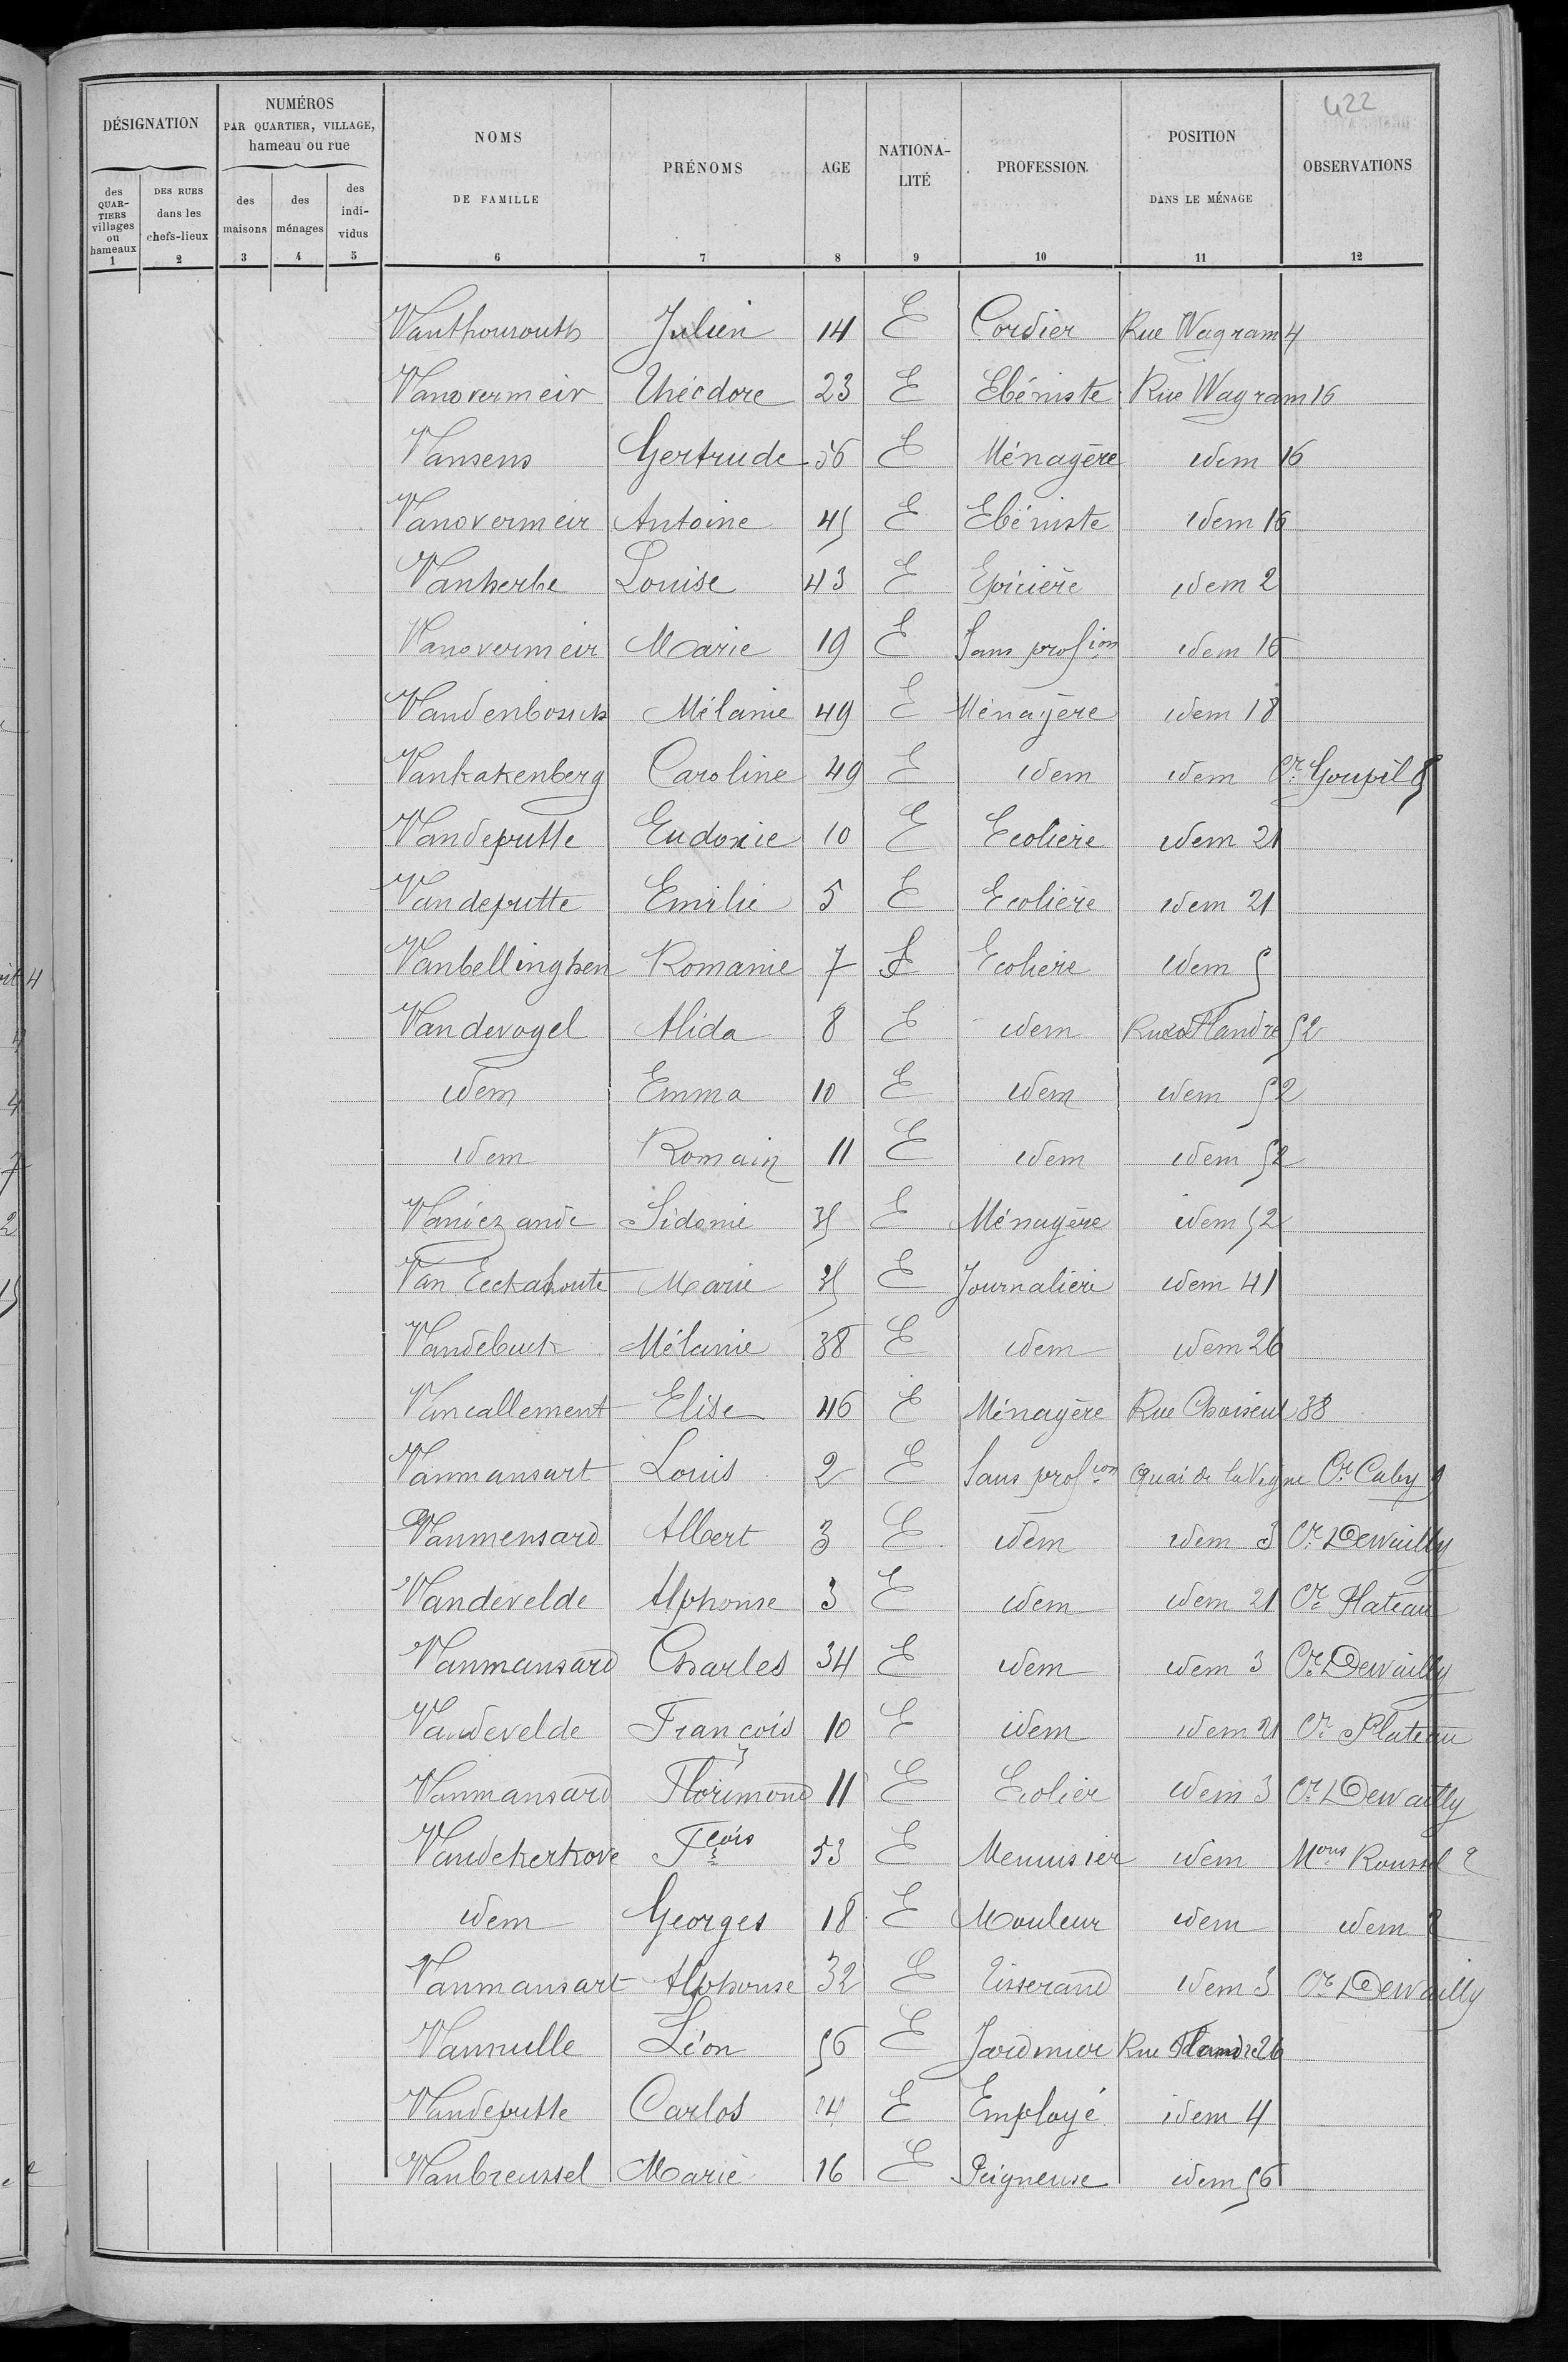 422
DÉSIGNATION | NUMÉROS PAR QUARTIER, VILLAGE, hameau ou rue | NOMS DE FAMILLE | PRÉNOMS | AGE | NATIONA-LITÉ | PROFESSION | POSITION DANS LE MÉNAGE | OBSERVATIONS
des QUAR-TIERS villages ou hameaux | DES RUES dans les chefs-lieux | des maisons | des ménages | des indi-vidus
1 2 3 4 5 6 7 8 9 10 11 12
Vanthourouth Julien 14 E Cordier Rue Wagram 4
Vanovermeir Théodore 23 E Ebéniste Rue Wagram 16
Vansens Gertrude 56 E Ménagère idem 16
Vanovermeir Antoine 45 E Ebéniste idem 16
Vanherbe Louise 43 E Epicière idem 2
Vanovermeir Marie 19 E Sans profion idem 16
Vandenbosuch Mélanie 49 E Ménagère idem 18
Vankakenberg Caroline 49 E idem idem Cr. Goupil 85
Vandeputte Eudoxie 10 E Ecolière idem 21
Vandeputte Emilie 5 E Ecolière idem 21
Vanbellinghen Romanie 7 F Ecolière idem 5
Vandevogel Alida 8 E idem Rue de Flandre 52
idem Emma 10 E idem idem 52
idem Romain 11 E idem idem 52
Sidonie 35 E Ménagère idem 52
Van Eeckahoute Marie 35 E Journalière idem 41
Vandebuck Mélanie 38 E idem idem 26
Vancallement Elise 46 E Ménagère Rue Choiseul 38
Vanmansart Louis 2 E Sans profion Quai de la Vigne Cr. Caby 9
Vanmensard Albert 3 E idem idem 3 Cr. Dewailly
Vandevelde Alphonse 3 E idem idem 21 Cr. Plateau
Vanmansard Charles 34 E idem idem 3 Cr. Dewailly
Vandevelde François 10 E idem idem 21 Cr. Plateau
Vanmansard Florimond 11 E Ecolier idem 3 Cr. Dewailly
Vandekerkove Fçois 53 E Menuisier idem Mons Roussel 2
idem Georges 18 E Mouleur idem idem 2
Vanmansart Alphonse 32 E Tisserand idem 3 Cr. Dewailly
Vannulle Léon 56 E Jardinier Rue Flandre 26
Vandeputte Carlos 24 E Employé idem 4
Vanbreussel Marie 16 E Peigneuse idem 56